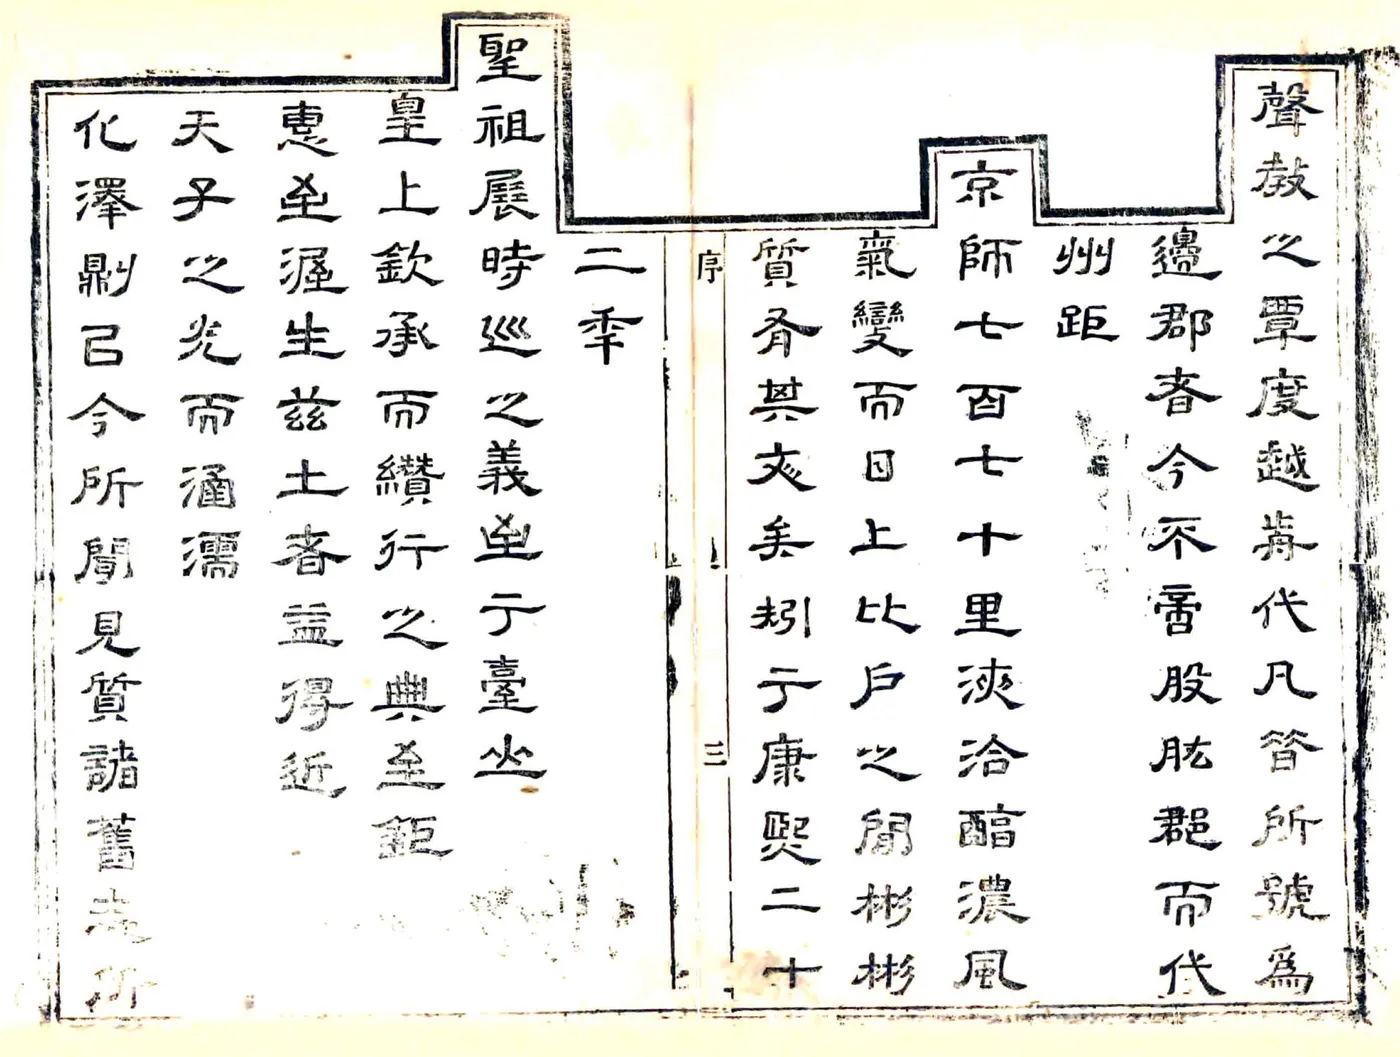 聲敎之覃度越前代凡昔所號爲
邊郡者今不啻股肱郡而代
州距
京師七百七十里浹洽醕濃風
氣變而日上比戶之閒彬彬
質有其文矣矧于康熙二十
序
三
二年
聖祖展時巡之義至于臺山
皇上欽承而纘行之典至鉅
惠至渥生茲土者益得近
天子之光而涵濡
化澤劓已今所聞見質諸舊志所